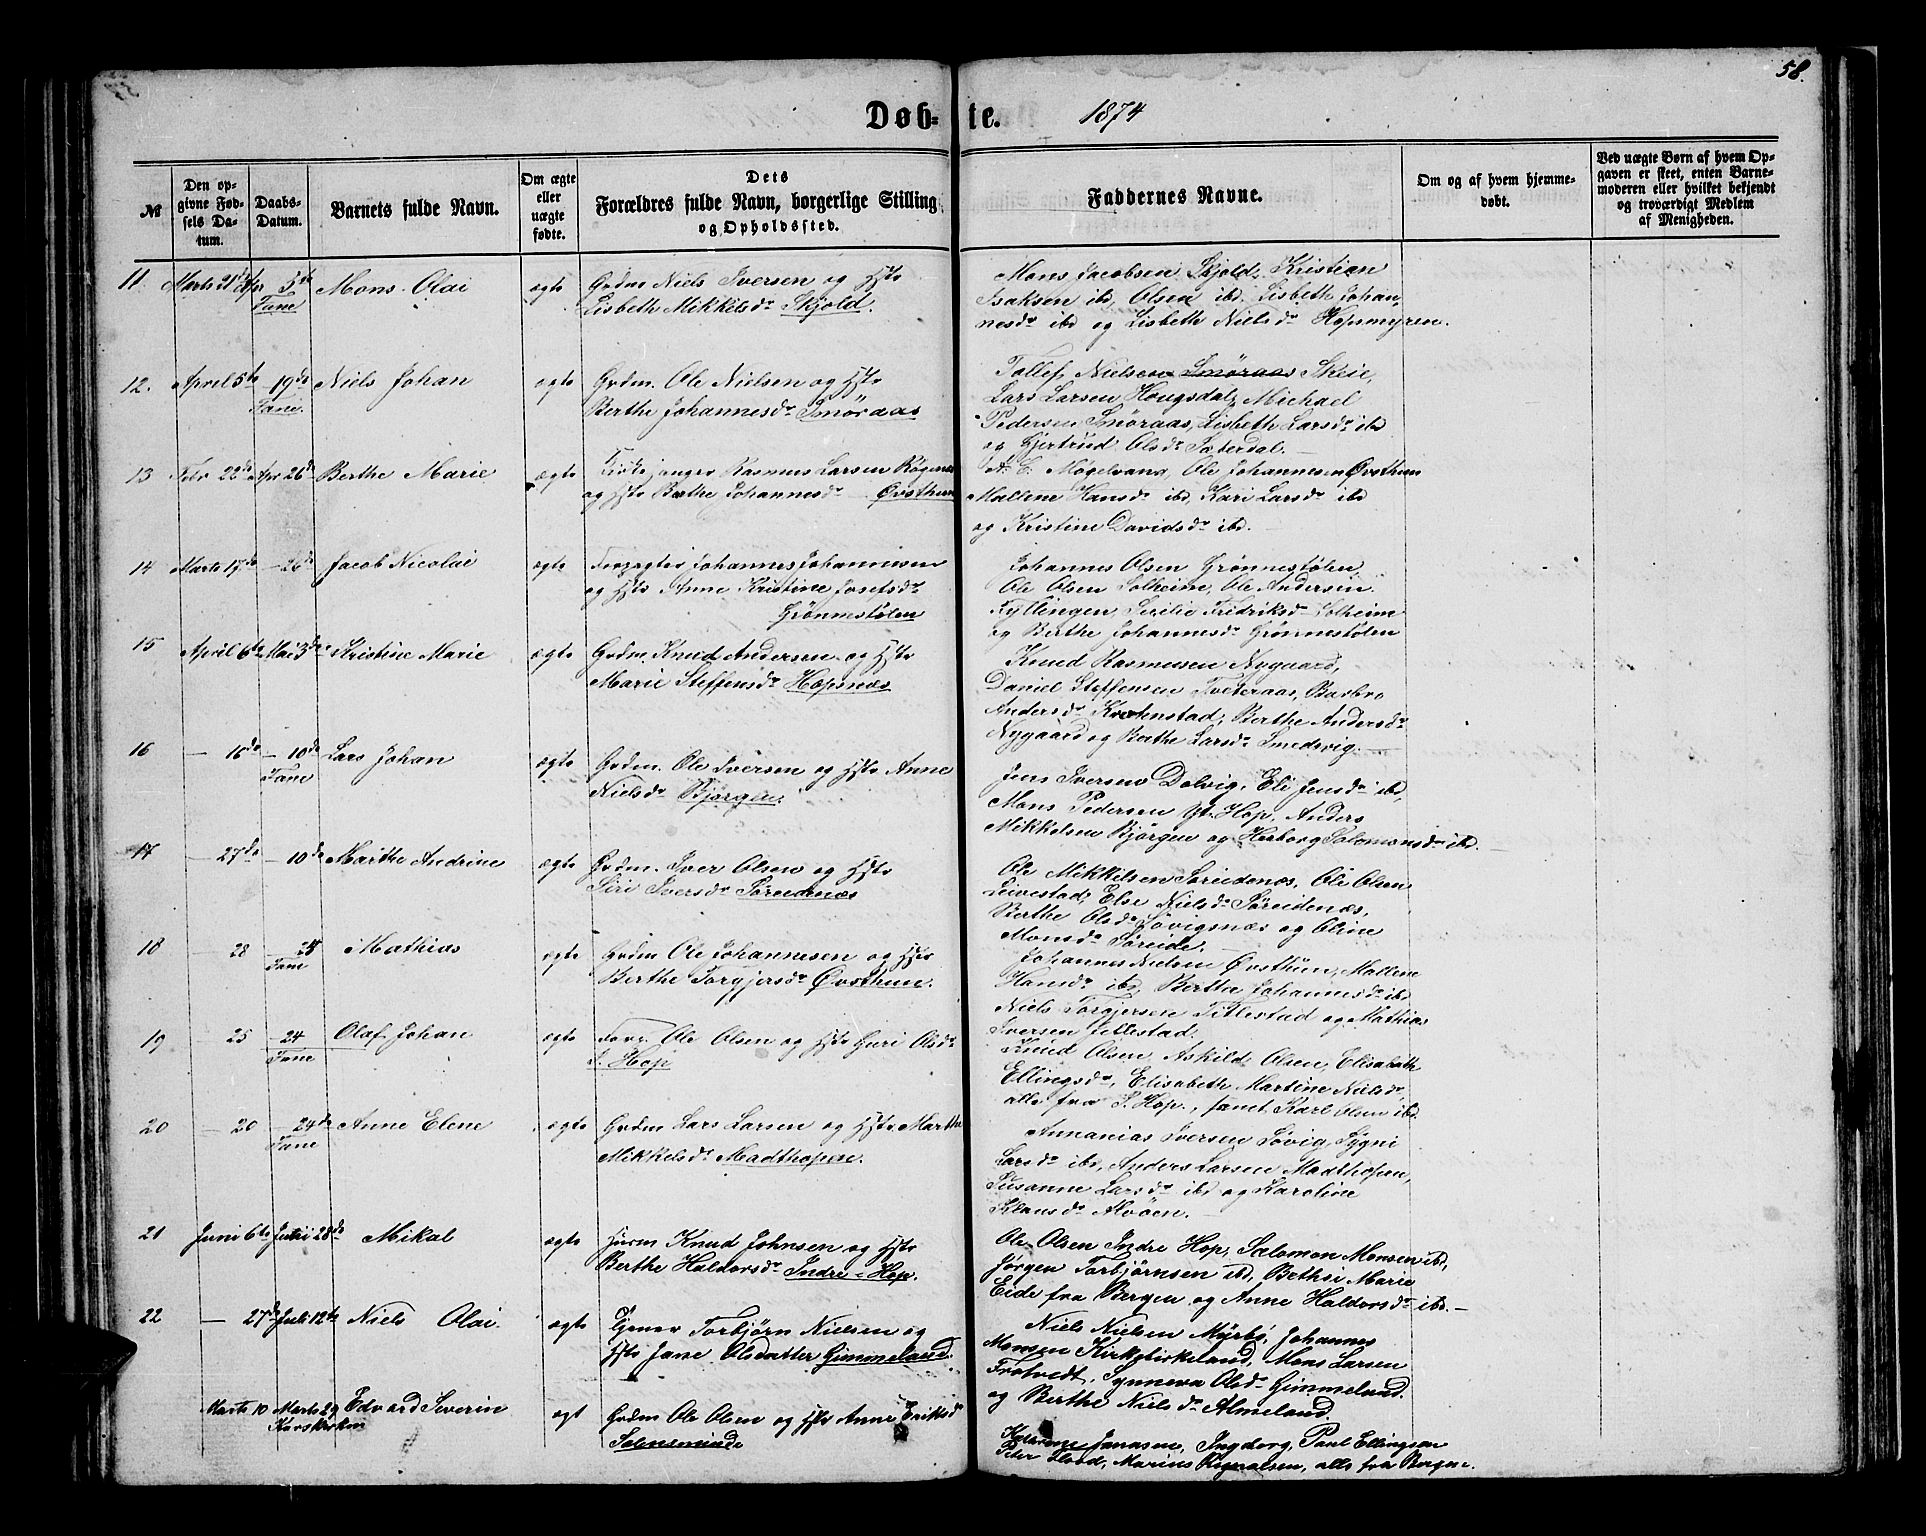 58.
Døb- te. 1874
No
Den op-
givne Fød-
sels Da-
tum.
Daabs-
Datum.
Barnets fulde Navn.
Om ægte
eller
uægte
fødte.
Dets
Forældres fulde Navn, borgerlige Stilling
og Opholdssted.
Faddernes Navne.
Om og af hvem hjemme-
døbt.
Ved uægte Børn af hvem Op-
gaven er skeet, enten Barne-
moderen eller hvilket bekjendt
og troværdigt Medlem
af Menigheden.
11. Marts 21de Apr 5te Mons Olai ægte Grdm Niels Iversen og Hstr
Fane Lisbeth Mikkelsdr Skjold.
Mons Jacobsen Skjold, Kristian
Isaksen ibd, Olsen ibd. Lisbeth Johan
nesdr ibd og Lisbeth Nielsdr Hopsmyren.
12. April 5te — 19de Niels Johan ægte Grdm. Ole Nielsen og Hstr
Fane. Berthe Johannesdr Smöraas
Tollef Nielsen Smöraas Skeie,
Lars Larsen Hougsdal, Michael
Pedersen Smöraas, Lisbeth Larsdr ibd
og Gjertrud Olsdr Sæterdal.—
13 Febr 22de Apr 26de Berthe Marie ægte Rasmus Larsen
og Hstr Berthe Johannesdr Øvsthun
A. E. Mögelvang, Ole Johannesen Øvsthun
Mallene Hansdr ibd, Kari Larsdr ibd
og Kristine Davidsdr ibd.
14 Marts 17de — 26de Jacob Nicolai ægte Forpagter Johannes Johannesen
og Hstr Anne Kristine Josefsdr
Grönnestølen
Johannes Olsen Grönnestölen,
Ole Olsen Solheim, Ole Andersen
Kyllingen, Sesilie Fredriksdr Solheim
og Berthe Johannesdr Grönnestölen
15 April 6te Mai 3de Kristine Marie ægte Grdm. Knud Andersen og Hstr
Marie Steffensdr Hopsnæs
Knud Rasmusen Nygaard,
Daniel Steffensen Tveteraas, Barbro
Andersdr Krohnstad, Berthe Andersdr
Nygaard og Berthe Larsdr Smedsvig.—
16 — 16de — 10de Lars Johan ægte Grdm. Ole Iversen og Hstr Anne
Fane Nielsdr Bjørgen.
Jens Iversen Dolvig, Eli Jensdr ibd,
Mons Pedersen Yt. Hop, Anders
Mikkelsen Bjørgen og Herborg Salomonsdr ibd.
17 — 27de — 10de Marthe Andrine ægte Grdm. Iver Olsen og Hstr
Siri Iversdr Søreidenæs
Ole Mikkelsen Søreidenæs, Ole Olsen
Leivestad, Else Nielsdr Søreidenæs,
Berthe Olsdr Søvigsnæs og Oline
Monsdr Søreide.
18 — 28 — 24 Mathias ægte Grdm Ole Johannesen og Hstr
Fane Berthe Torgjersdr Øvsthun.
Johannes Nielsen Øvsthun, Mallene
Hansdr ibd, Berthe Johannesdr ibd
Niels Torgjersen Titlestad og Mathias
Iversen Titlestad.
19 25 24 Olaf Johan ægte Ole Olsen og Hstr Guri Olsdr
Fane I. Hop
Knud Olsen, Askild Olsen, Elisabeth
Ellingsdr, Elisabeth Martine Nielsdr,
alle fra I. Hop., samt Karl Olsen ibd.
20 — 20 — 24de Anne Elene ægte Grdm Lars Larsen og Hstr Marthe
Fane Mikkelsdr Madthopen.
Annanias Iversen Søvig, Sygni
Larsdr ibd, Anders Larsen Madthopen,
Susanne Larsdr ibd og Karoline
Klausdr Alvöen.—
21 Juni 6te Juni 28de Mikal ægte Husm Knud Johnsen og Hstr
Berthe Haldorsdr Indre-Hop.
Ole Olsen Indre Hop, Salomon Monsen ibd,
Jørgen Torbjørnsen ibd, Bethsi Marie
Eide fra Bergen og Anne Haldorsdr ibd.—
22 — 27de Juli 12te Niels Olai. ægte Tjener Torbjørn Nielsen og
Hstr Jane Olsdatter Gimmeland.
Niels Nielsen Myrbö, Johannes
Monsen Kirkebirkeland, Mons Larsen
Trotvedt, Synneva Olsdr Gimmeland.
og Berthe Nielsdr Almeland.
Marts 10 Marts 29 Edvard Severin ægt Grdm Ole Olsen og Hstr Anne Eriksdr
Korskirken Solensminde
Janasen, Ingborg, Paul Ellingsen
Peter Flood, Marius, alle fra Bergen.